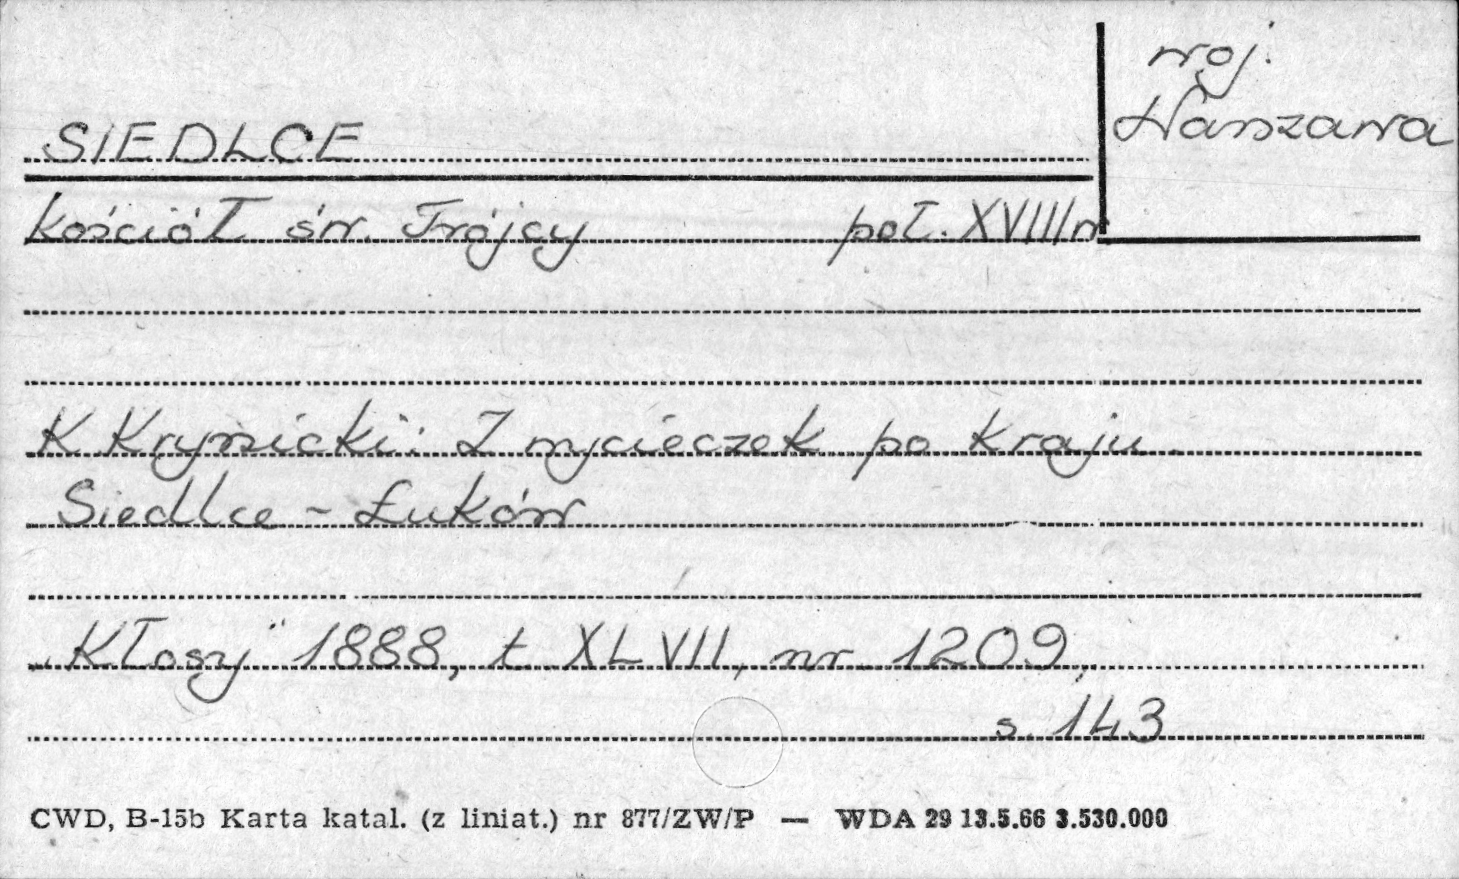 woj.
Warszawa
SIEDLCE
kościół św. Trójcy poł. XVIII w
K Krynicki: Z wycieczek po kraju.
Siedlce - Łuków
"Kłosy" 1888, t. XLVII, nr 1209,
s. 143
CWD, B-15b Karta katal. (z liniat.) nr 877/ZW/P — WDA 29 13.5.66 3.530.000